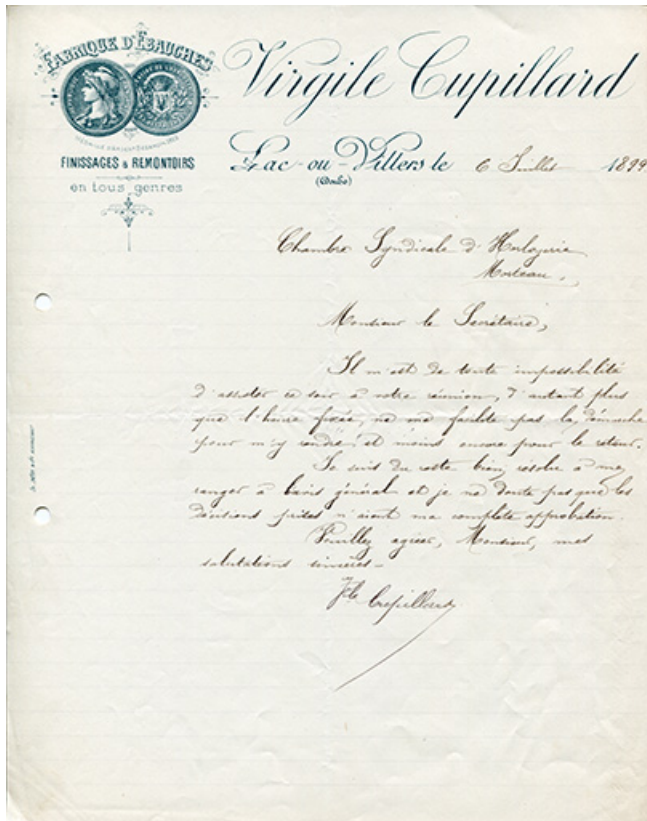 FABRIQUE D'ÉBAUCHES
Virgile Cupillard
FINISSAGES & REMONTOIRS
en tous genres
Lac-ou-Villers le 6 Juillet 1899
(Doubs)
Chambre Syndicale d'Horlogerie
Morteau.
Monsieur le Secrétaire,
Il m'est de toute impossibilité
d'assister ce soir à votre réunion, d'autant plus
que l'heure fixée, ne me facilite pas la démarche
pour m'y rendre et moins encore pour le retour.
Je suis du reste bien résolu à me
ranger à l'avis général et je ne doute pas que les
décisions prises n'aient ma complète approbation.
Veuillez agréer, Monsieur, mes
salutations sincères
Cupillard